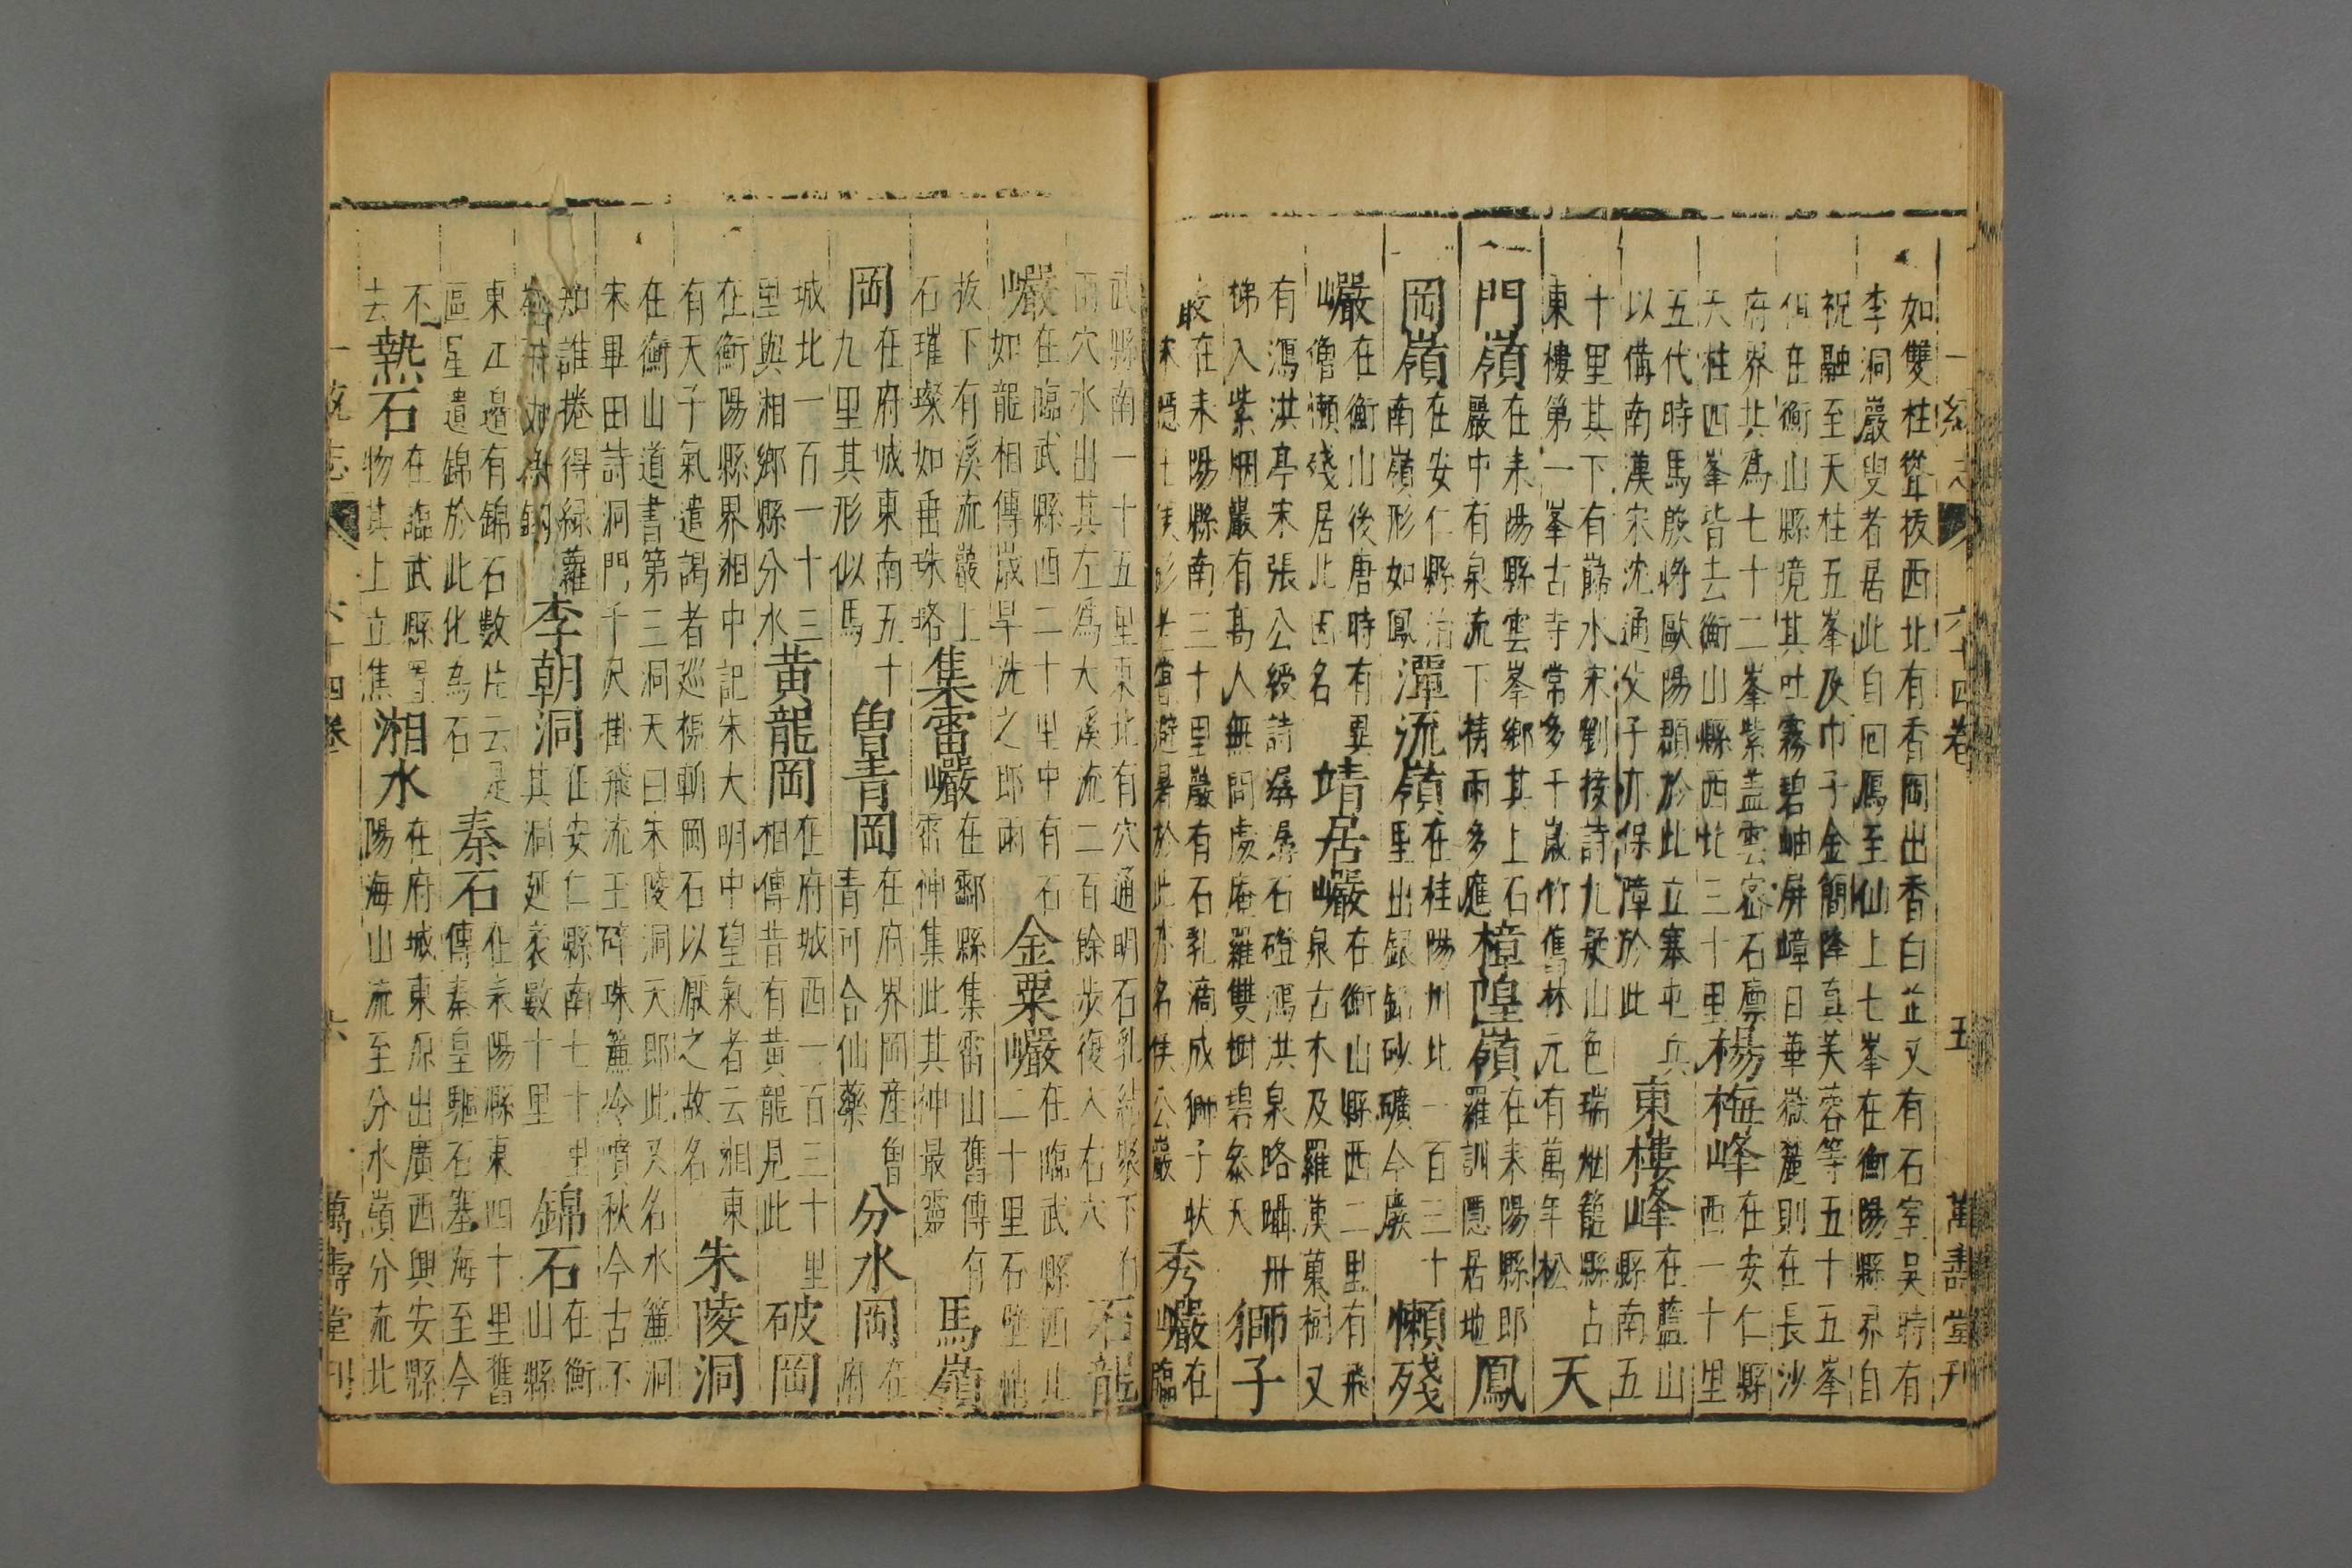 一統志 六十四卷 五 萬壽堂刊
如雙柱聳拔西北有香岡出香白芷又有石室吳時有
李洞巖叟者居此自回鴈至仙上七峯在衡陽縣界自
祝融至天柱五峯及巾子金簡降真芙蓉等五十五峯
俱在衡山縣境其吐霧碧岫屏嶂日華嶽麓則在長沙
府界共爲七十二峯紫蓋雲密石廩
天柱四峯皆去衡山縣西北三十里
楊梅峰
在安仁縣
西一十里
五代時馬殷將歐陽頵於此立寨屯兵
以備南漢宋沈通父子亦保障於此
東樓峰
在藍山
縣南五
十里其下有歸水宋劉接詩九疑山色瑞烟籠縣占
東樓第一峯古寺常多千歲竹舊林元有萬年松
天
門嶺
在耒陽縣雲峯鄉其上石
巖中有泉流下禱雨多應
樟隍嶺
在耒陽縣郎
羅訓隱居地
鳳
岡嶺
在安仁縣治
南嶺形如鳳
潭流嶺
在桂陽州北一百三十
里出銀鉛砂礦今廢
懶殘
巖
在衡山後唐時有異
僧懶殘居此因名
靖居巖
在衡山縣西二里有飛
泉古木及羅漢菓樹又
有鴻洪亭宋張公綬詩潺湲石磴鴻洪泉路躡丹
梯入紫烟巖有高人無問處庵羅雙樹碧叅天
獅子
巖
在耒陽縣南三十里巖有石乳滴成獅子狀
宋隱士侯彭老嘗避暑於此亦名侯公巖
秀巖
在
臨
武縣南一十五里東北有穴通明石乳結聚下有
兩穴水出其左爲大溪流二百餘步復入右穴
石龍
巖
在臨武縣西二十里中有石
如龍相傳歲旱洗之即雨
金粟巖
在臨武縣西北
二十里石壁
拔下有溪流巖上
石璀璨如垂珠璐
集靈巖
在酃縣集雲山舊傳有
衆神集此其神最靈
馬嶺
岡
在府城東南五十
九里其形似馬
曾青岡
在府界岡產曾
青可合仙藥
分水岡
在
府
城北一百一十三
里與湘鄉縣分水
黃龍岡
在府城西一百三十里
相傳昔有黃龍見此
破岡
在衡陽縣界湘中記朱大明中望氣者云湘東
有天子氣遣謁者巡視斬岡石以厭之故名
朱陵洞
在衡山道書第三洞天曰朱陵洞天即此又名水簾洞
宋畢田詩洞門千尺掛飛流玉碎珠簾冷噴秋今古不
知誰捲得綠蘿
李朝洞
在安仁縣南七十里
其洞延袤數十里
錦石
在衡
山縣
東江邉有錦石數片云是
區星遺錦於此化為石
秦石
在耒陽縣東四十里舊
傳秦皇驅石塞海至今
不
去
熱石
在臨武縣置
物其上立焦
湘水
在府城東源出廣西興安縣
陽海山流至分水嶺分流北
一統志 六十四卷 六 萬壽堂刊